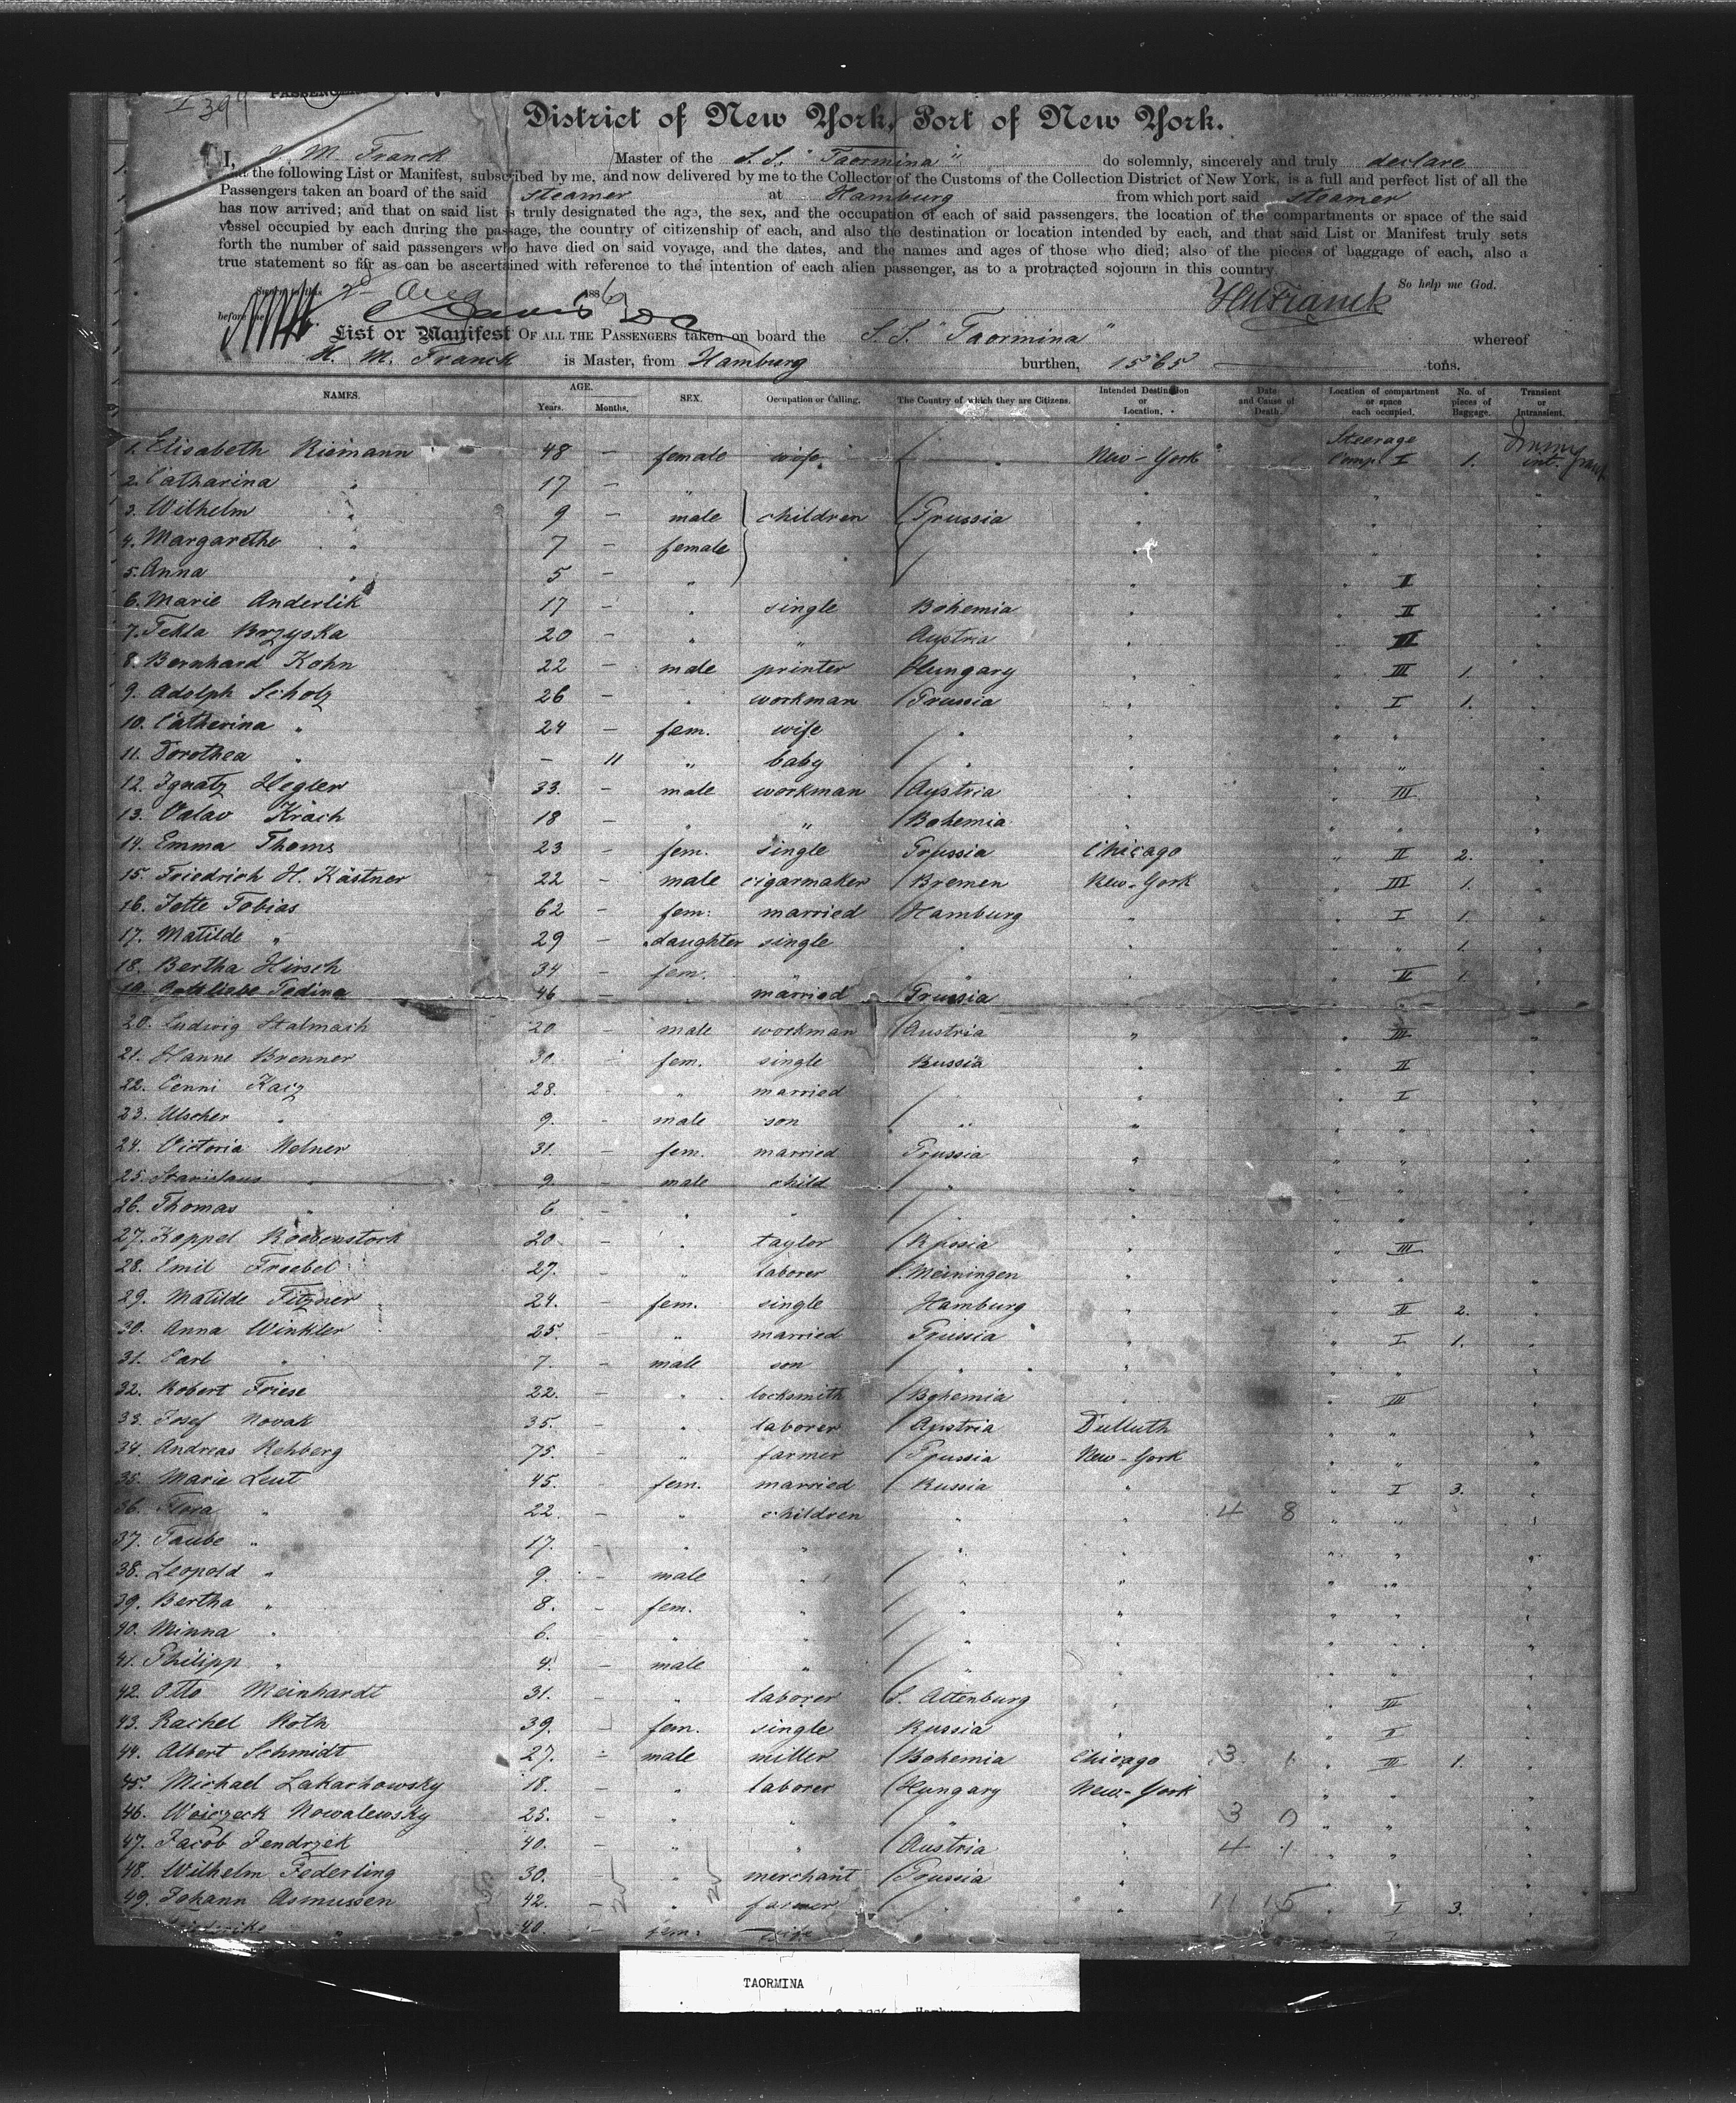 I 399
District of New York, Port of New York.
I, H. M. Franck Master of the S. S. "Taormina" do solemnly, sincerely and truly declare
that the following List or Manifest, subscribed by me, and now delivered by me to the Collector of the Customs of the Collection District of New York, is a full and perfect list of all the
Passengers taken an board of the said steamer at Hamburg from which port said steamer
has now arrived; and that on said list is truly designated the age, the sex, and the occupation of each of said passengers, the location of the compartments or space of the said
vessel occupied by each during the passage, the country of citizenship of each, and also the destination or location intended by each, and that said List or Manifest truly sets
forth the number of said passengers who have died on said voyage, and the dates, and the names and ages of those who died; also of the pieces of baggage of each, also a
true statement so far as can be ascertained with reference to the intention of each alien passenger, as to a protracted sojourn in this country.
So help me God.
Sworn to this 2 Aug 1886
before me HMFranck
List or Manifest OF ALL THE PASSENGERS taken on board the S. S. "Taormina" whereof
H. M. Franck is Master, from Hamburg burthen, 1565 tons.
NAMES. AGE. Years. Months. SEX. Occupation or Calling. The Country of which they are Citizens. Intended Destination or Location. Date and Cause of Death. Location of compartment or space each occupied. No. of pieces of Baggage. Transient or Intransient.
1. Elisabeth Riemann 48 – female wife " New-York Steerage Comp. I 1. int.
2. Catharina " 17 – " " " "
3. Wilhelm " 9 – male children Prussia " " "
4. Margarethe " 7 – female " " "
5. Anna " 5 – " " " II "
6. Marie Anderlik 17 – " single Bohemia " " II "
7. Tekla Brzyska 20 – " " Austria " " III "
8. Bernhard Kohn 22 – male printer Hungary " " III 1. "
9. Adolph Scholz 26 – " workman Prussia " " I 1. "
10. Catherina " 24 – fem. wife " " " " "
11. Dorothea " – 11 " baby " " " "
12. Ignatz Hegler 33. – male workman Austria " III "
13. Valav Krach 18 – " " Bohemia " " " "
14. Emma Thoms 23 – fem. single Prussia Chicago " II 2. "
15. Friedrich H. Kästner 22 – male cigarmaker Bremen New-York " III 1. "
16. Jette Tobias 62 – fem: married Hamburg " " I 1. "
17. Matilde " 29 – daughter single " " " " 1. "
18. Bertha Hirsch 34 – fem. " " " " II 1. "
19. Gottliebe Tedina 46 – " married Prussia "
20. Ludwig Stalmach 20 – male workman Austria " " III "
21. Hanne Brenner 30. – fem. single Russia " " II "
22. Cenni Kaiz 28. " married " " " I "
23. Ulscher " 9. – male son " " " " "
24. Victoria Nelner 31. – fem. married Prussia " " " "
25. Stanislaus " 9. – male child " " " " "
26. Thomas " 6 – " " " " " " "
27. Koppel 20. – " taylor Russia " " III "
28. Emil Froebel 27. – " laborer Meiningen " " " "
29. Matilde Fitzner 24. – fem. single Hamburg " " II 2. "
30. Anna Winkler 25. – " married Prussia " " I 1. "
31. Carl " 7. – male son " " " " "
32. Robert Friese 22. – " locksmith Bohemia " " III "
33. Josef Novak 35. – " laborer Austria Dulluth " " "
34. Andreas Rehberg 75. – " farmer Prussia New-York " " "
35. Marie Leut 45. – fem. married Russia " " I 3. "
36. Flora " 22. – " children " " 4 8 " " "
37. Taube " 17. – " " " " " "
38. Leopold " 9. – male " " " " " "
39. Bertha " 8. – fem. " " " " " "
40. Minna " 6. – " " " " " " "
41. Philipp " 4. – male " " " " " "
42. Otto Meinhardt 31. – " laborer S. Altenburg " " III "
43. Rachel Roth 39. – fem. single Russia " " I "
44. Albert Schmidt 27. – male miller Bohemia Chicago 3 1 " III 1. "
45. Michael Lakarhowsky 18. – " laborer Hungary New-York " " "
46. Woiczeck Nowalewsky 25. – " " " " 3 0 " " "
47. Jacob Jendrzek 40. – " " Austria " 4 1 " " "
48. Wilhelm Federling 30. – " merchant Prussia " " " "
49. Johann Asmussen 42. – " farmer " " 11 15 " I 3. "
" 40. – fem. wife I
TAORMINA